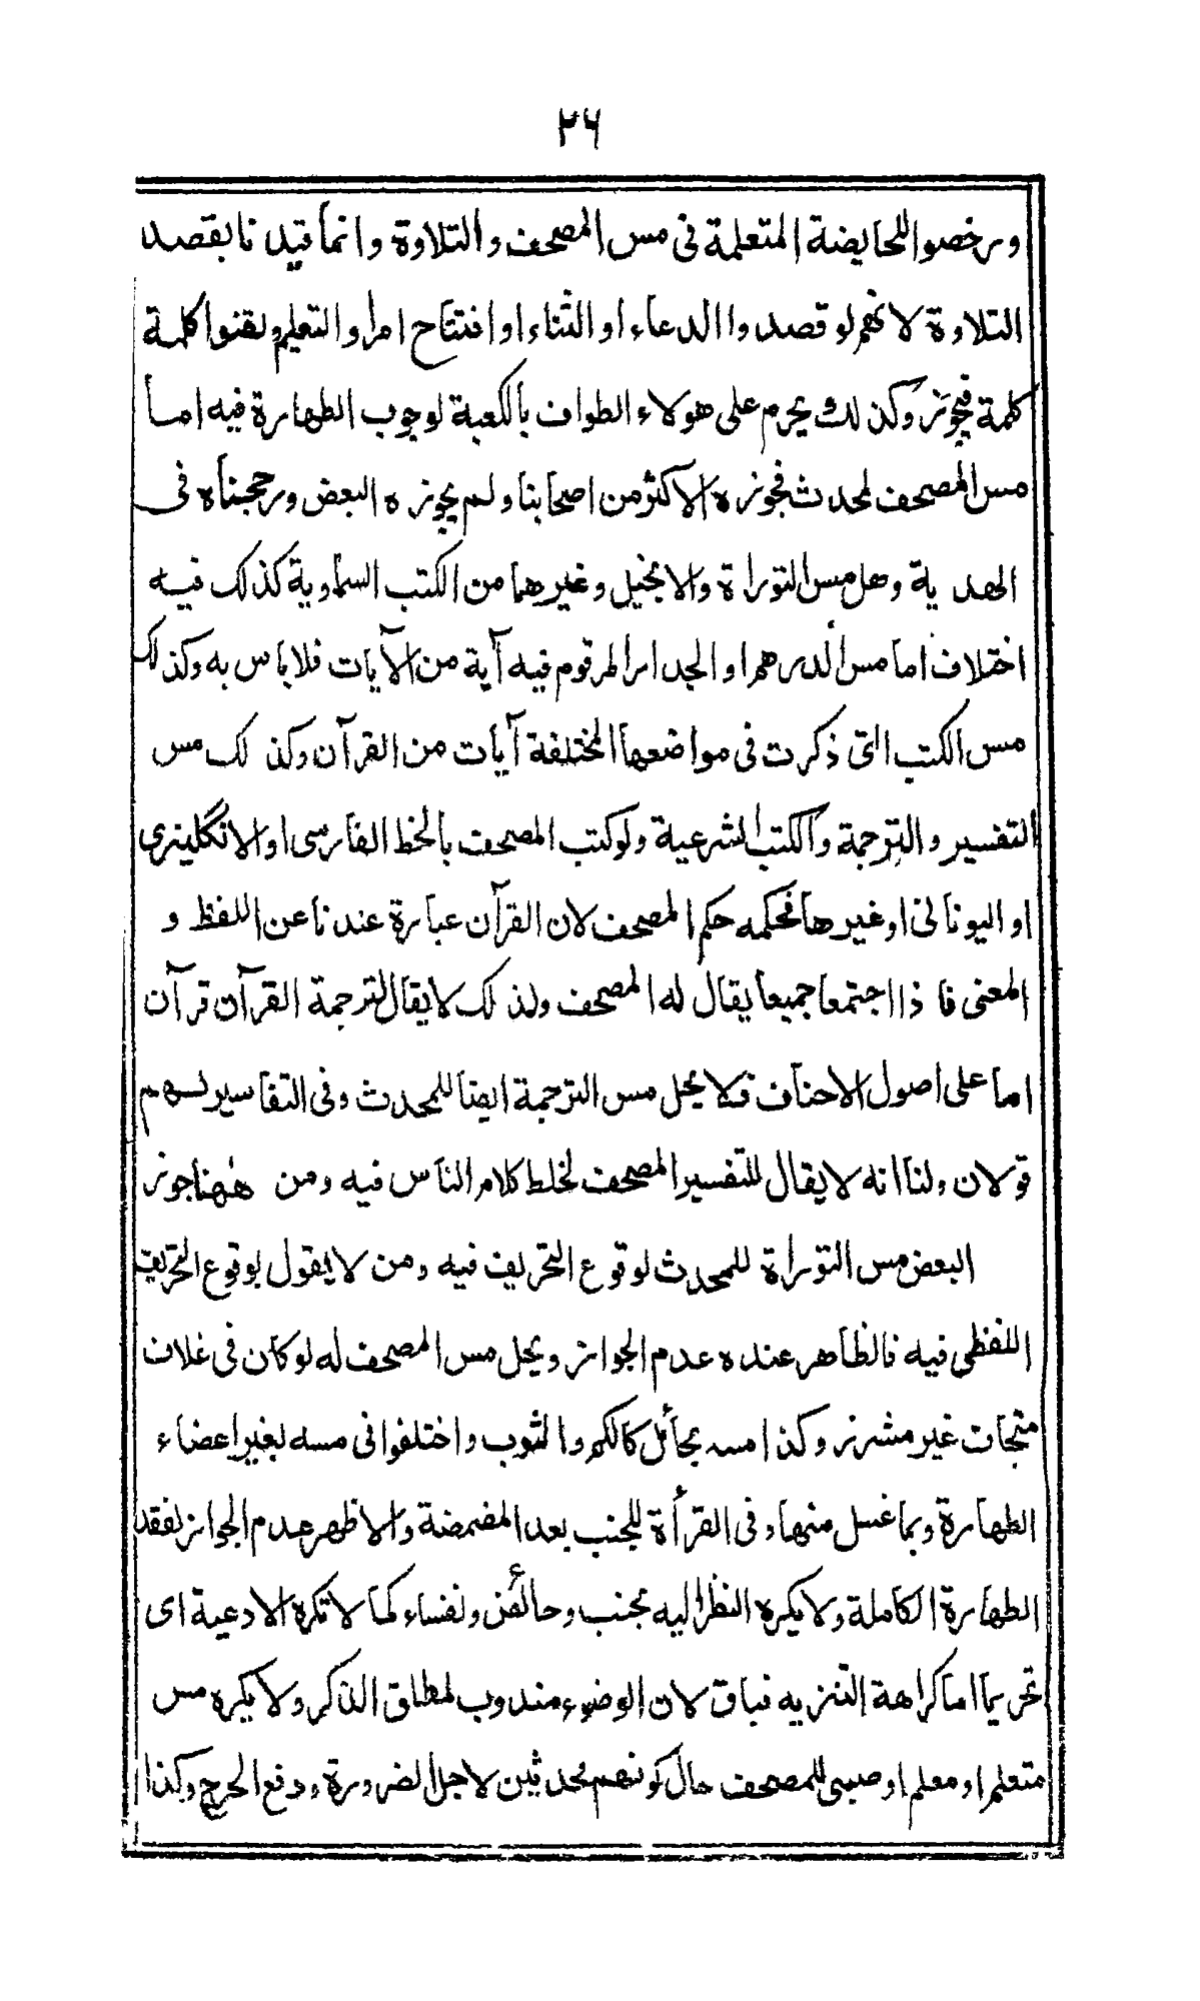 ٢٦
ورخصوا للحايضة المتعلمة في مس المصحف والتلاوة وانما قيدنا بقصد
التلاوة لانهم لو قصدوا الدعاء او الثناء او افتتاح امر او التعليم ولقنوا كلمة
كلمة فيجوز وكذلك يحرم على هولاء الطواف بالكعبة لوجوب الطهارة فيه اما
مس المصحف لمحدث فجوزه الاكثر من اصحابنا ولم يجوزه البعض ورجحناه في
الهدية وهل مس التوراة والانجيل وغيرهما من الكتب السماوية كذلك فيه
اختلاف اما مس الدرهم او الجدار المرقوم فيه آية من الآيات فلا باس به وكذلك
مس الكتب التي ذكرت في مواضعها المختلفة آيات من القرآن وكذلك مس
التفسير والترجمة والكتب الشرعية ولو كتب المصحف بالخط الفارسى او الانگليزى
او اليونانى او غيرها فحكمه حكم المصحف لان القرآن عبارة عندنا عن اللفظ و
المعنى فاذا اجتمعا جميعا يقال له المصحف ولذلك لا يقال لترجمة القرآن قرآن
اما على اصول الاحناف فلا يحل مس الترجمة ايضا للمحدث وفى التفاسير لهم
قولان ولنا انه لا يقال للتفسير المصحف لخلط كلام الناس فيه ومن ههنا جوز
البعض مس التوراة للمحدث لوقوع التحريف فيه ومن لا يقول بوقوع التحريف
اللفظى فيه فالظاهر عنده عدم الجواز ويحل مس المصحف له لو كان فى غلاف
متجاف غير مشرز وكذا مسه بحائل كالكم والثوب واختلفوا فى مسه بغير اعضاء
الطهارة وبما غسل منها وفى القرأة للجنب بعد المضمضة والاظهر عدم الجواز لفقد
الطهارة الكاملة ولا يكره النظر اليه لجنب وحائض ونفساء كما لا تكره الادعية اى
تحريما اما كراهة التنزيه فباق لان الوضوء مندوب لمطلق الذكر ولا يكره مس
متعلم او معلم او صبى للمصحف حال كونهم محدثين لاجل الضرورة ودفع الحرج وكذا